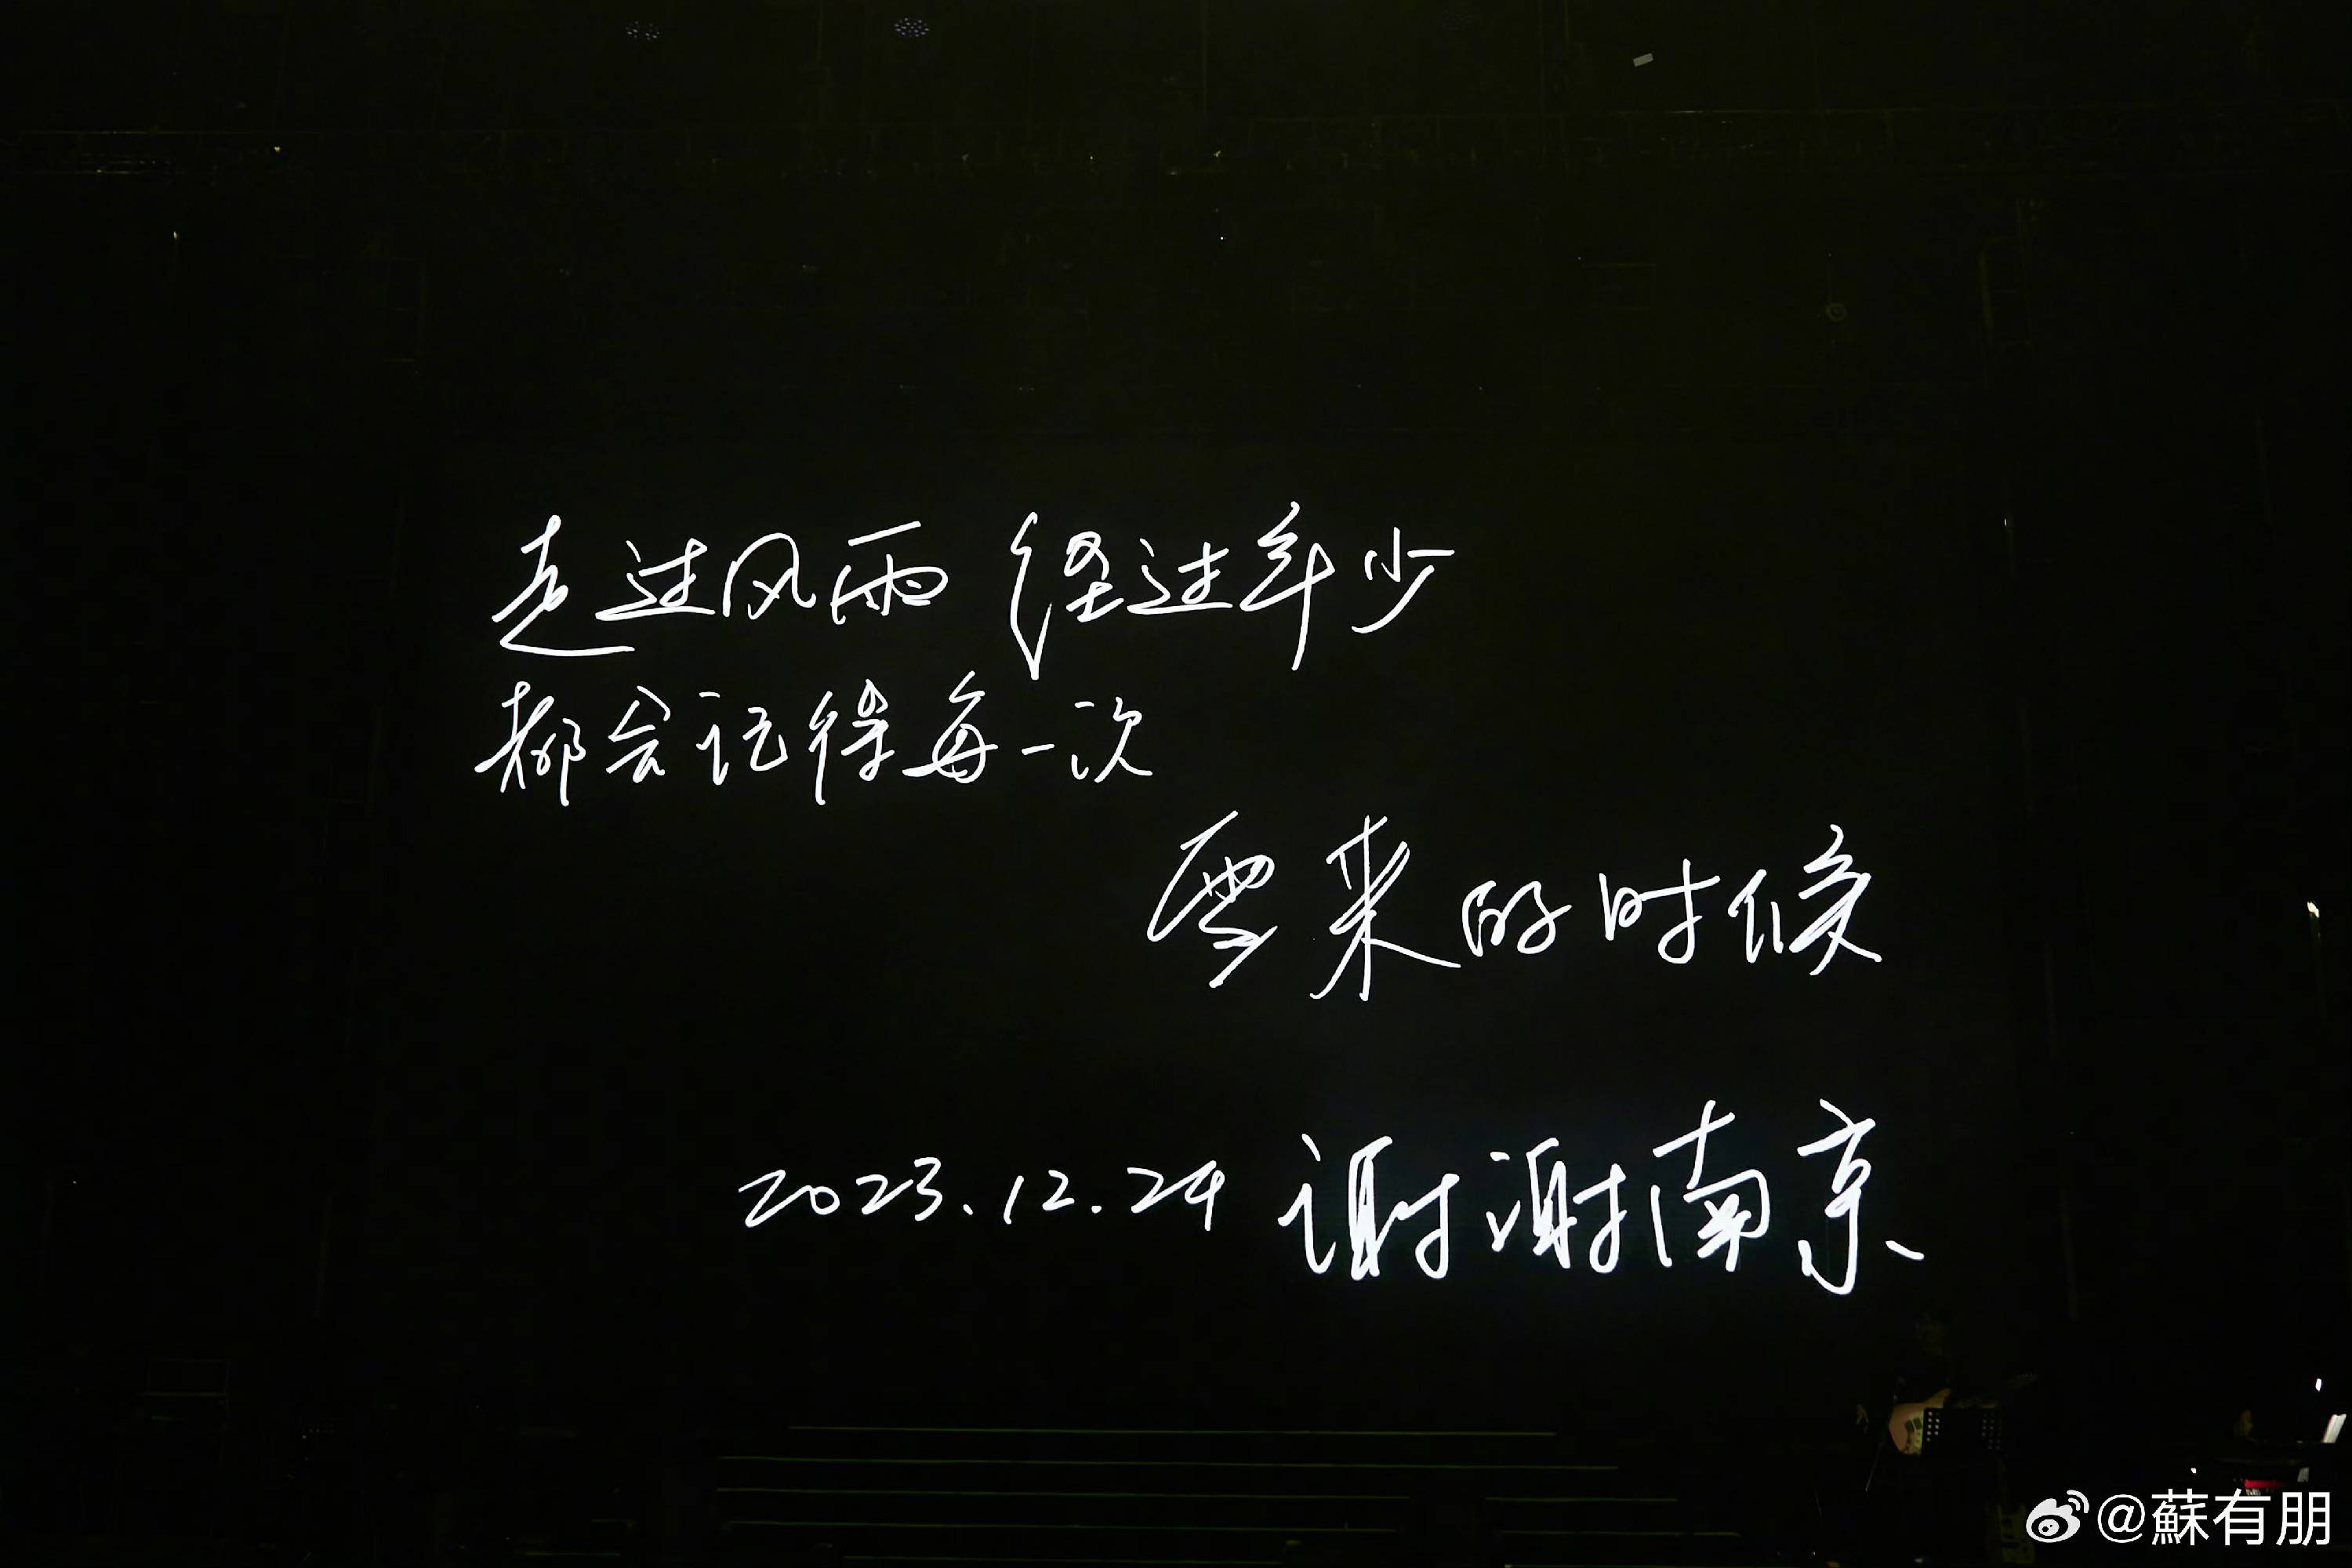 走过风雨 经过年少
都会记得每一次
要来的时候
2023.12.24 谢谢南京
@蘇有朋